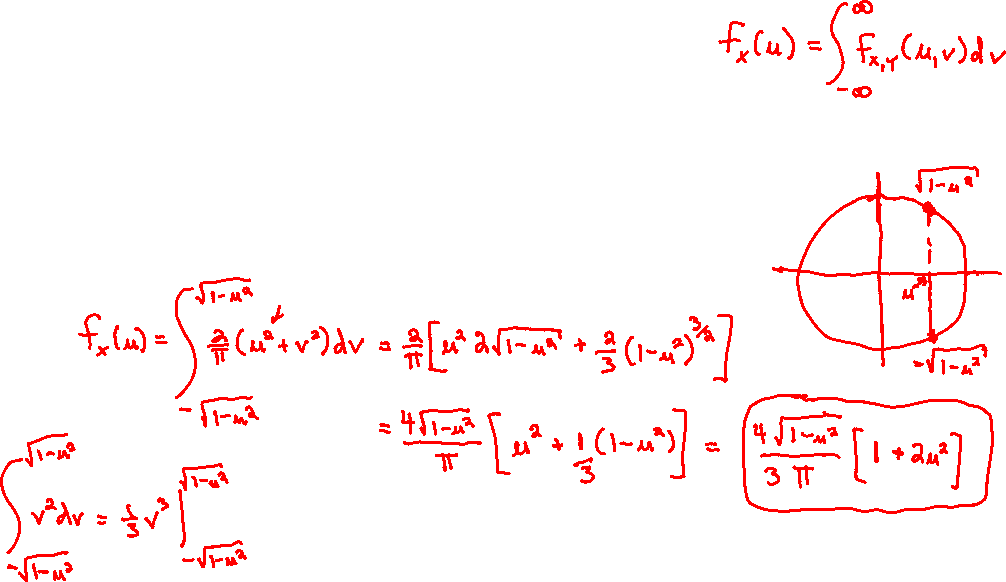 f_X(u) = ∫_{-∞}^{∞} f_{X,Y}(u,v)dv
√(1-u²)
u
-√(1-u²)
f_X(u) = ∫_{-√(1-u²)}^{√(1-u²)} 2/π (u² + v²) dv = 2/π [u² 2√(1-u²) + 2/3 (1-u²)^{3/2}]
= 4√(1-u²)/π [u² + 1/3 (1-u²)] = 4√(1-u²)/(3π) [1 + 2u²]
∫_{-√(1-u²)}^{√(1-u²)} v² dv = 1/3 v³ |_{-√(1-u²)}^{√(1-u²)}